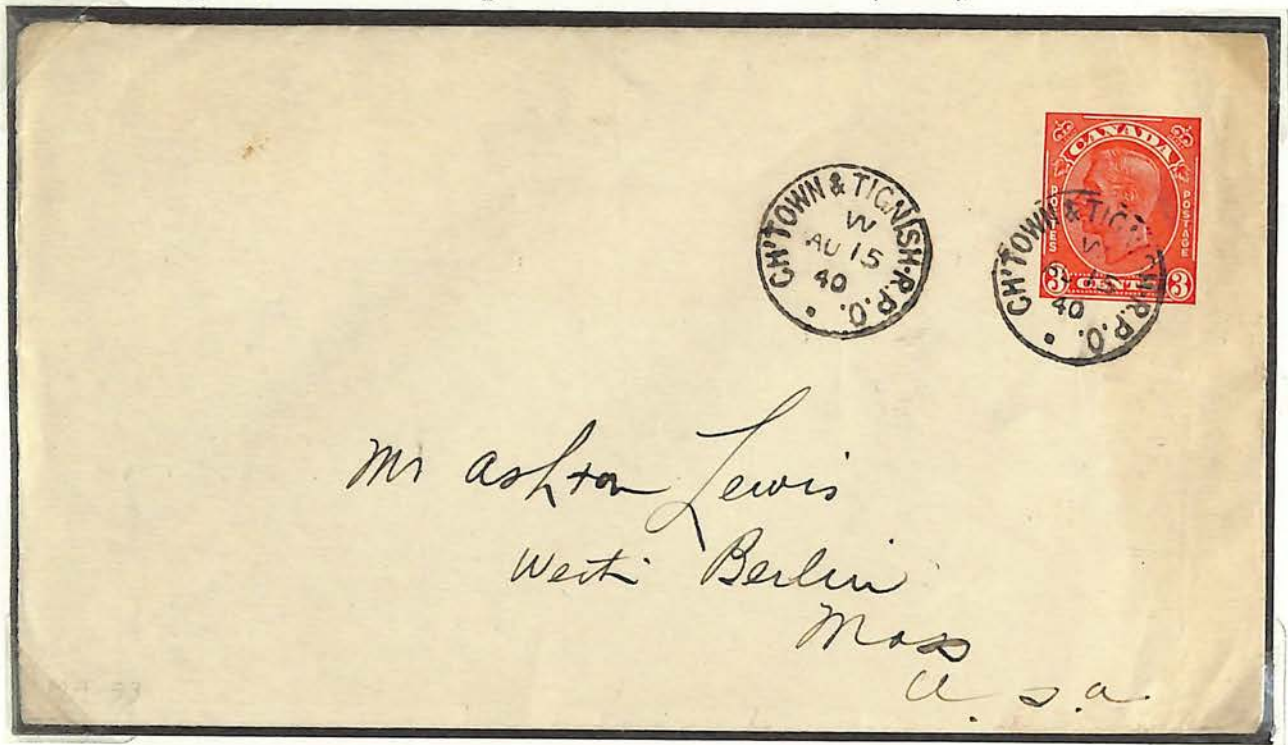 CANADA
POSTES
POSTAGE
3 CENTS 3
CH'TOWN & TIGNISH-R.P.O.
W
AU 15
40
CH'TOWN & TIGNISH-R.P.O.
W
AU 15
40
Mr Ashton Lewis
West Berlin
Mass
U.S.a.